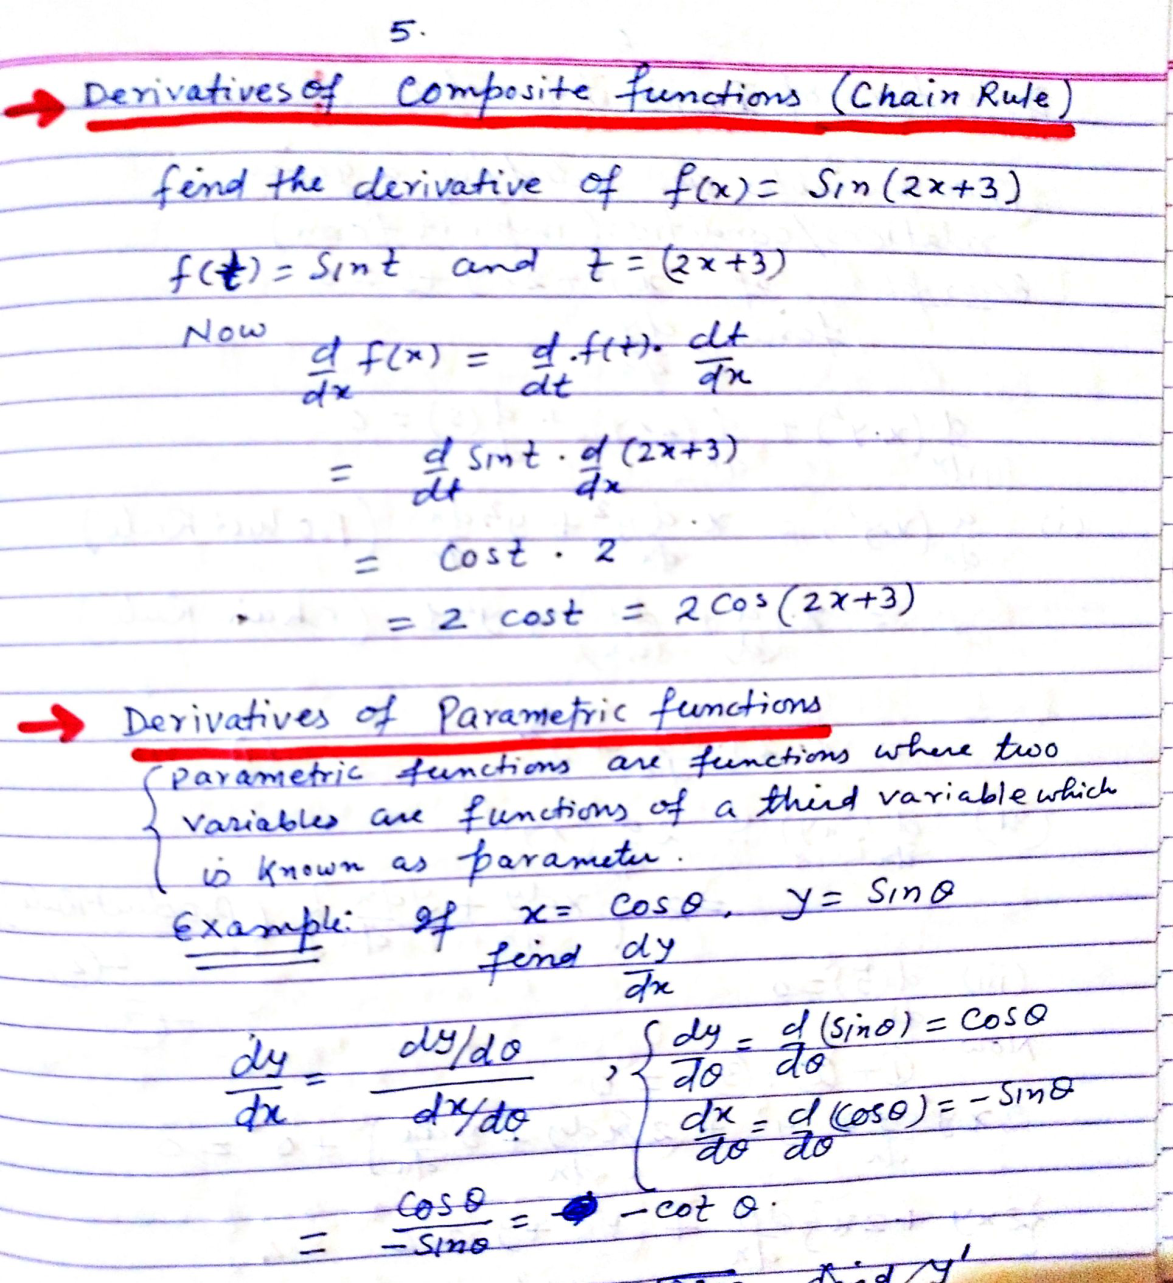 5.
→ Derivatives of Composite functions (Chain Rule)
find the derivative of f(x) = Sin (2x+3)
f(t) = Sin t and t = (2x+3)
Now d/dx f(x) = d/dt .f(t). dt/dx
= d/dt Sin t . d/dx (2x+3)
= Cos t . 2
= 2 cos t = 2 Cos (2x+3)
→ Derivatives of Parametric functions
{ Parametric functions are functions where two
variables are functions of a third variable which
is known as parameter.
Example: If x = cos θ, y = Sin θ
find dy/dx
dy/dx = (dy/dθ)/(dx/dθ) , { dy/dθ = d/dθ (sin θ) = cos θ
dx/dθ = d/dθ (cos θ) = - Sin θ
= cos θ / - Sin θ = - cot θ.
find y'